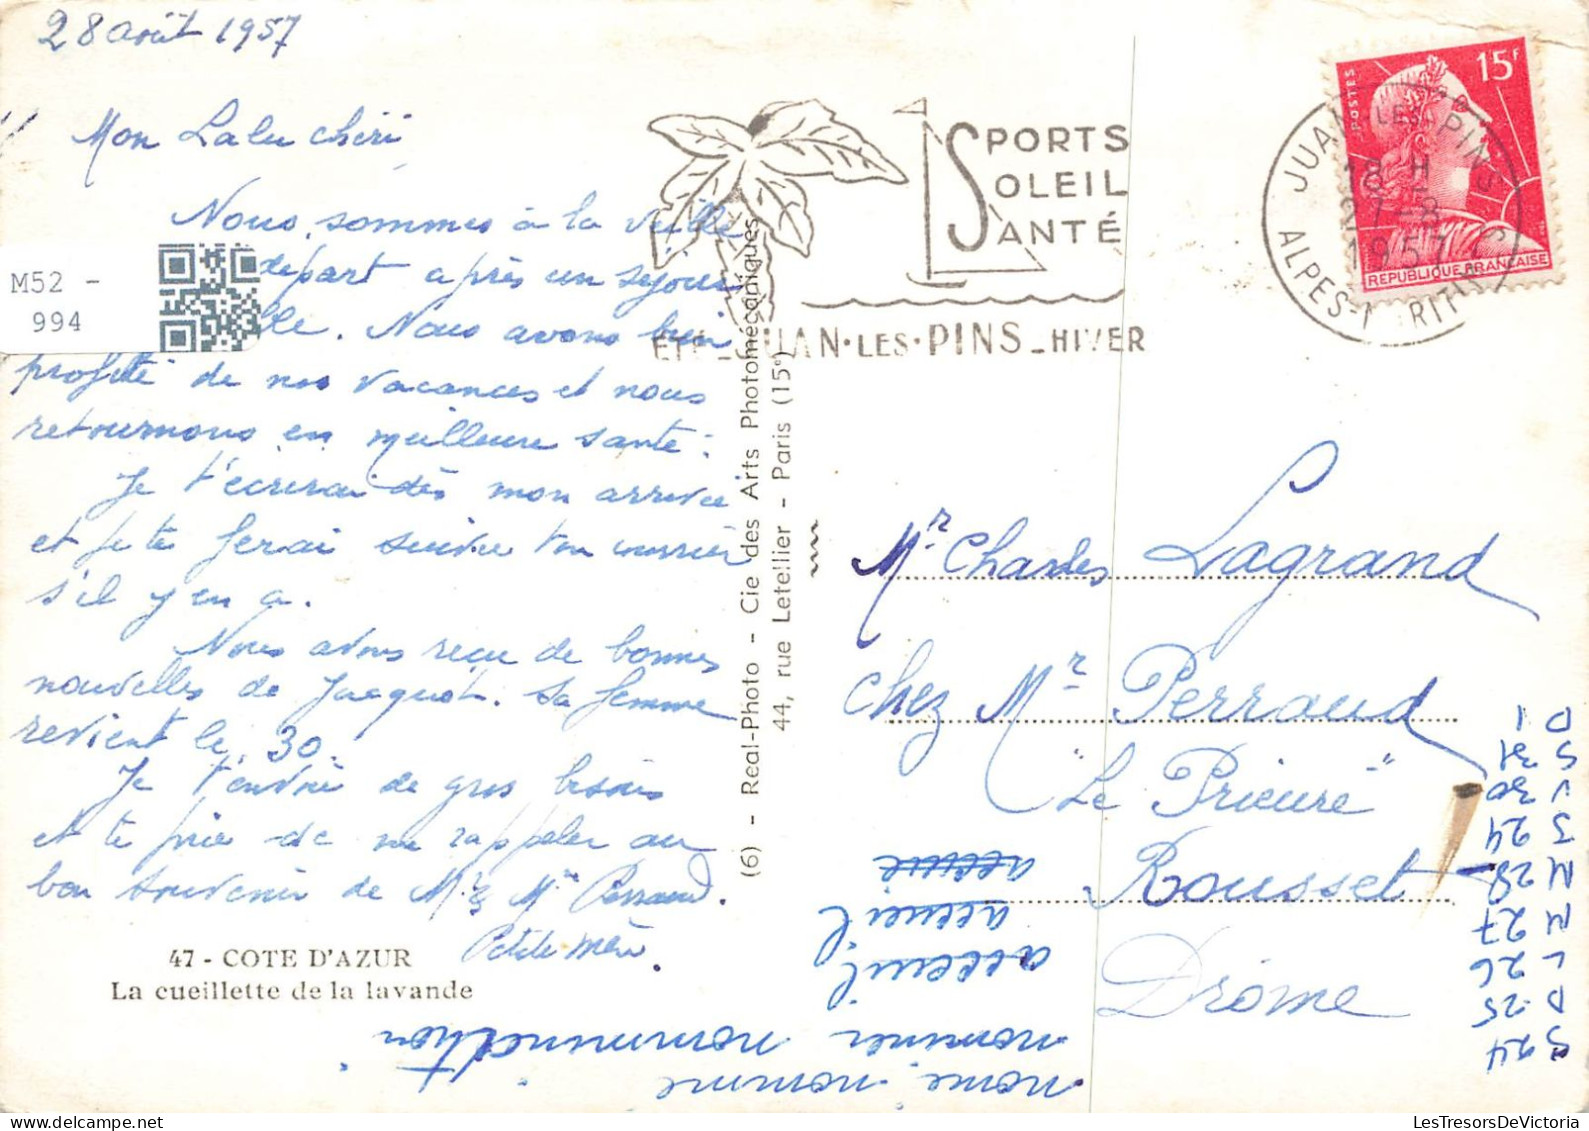 28 août 1957
Mon Lalu chéri
Nous sommes à la veille
départ après un séjour
lle. Nous avons bien
profité de nos vacances et nous
retournons en meilleure santé.
Je t'écrirai dès mon arrivée
et je te ferai suivre ton courrier
s'il y en a.
Nous avons reçu de bonnes
nouvelles de Jacquot. Sa femme
revient le 30.
Je t'envoie de gros baisers
et te prie de me rappeler au
bon souvenir de Mr & Me Perraud.
Petite mère.
M52 -
994
47 - COTE D'AZUR
La cueillette de la lavande
(6) - Real-Photo - Cie des Arts Photomécaniques
44, rue Letellier - Paris (15e)
SPORTS
SOLEIL
SANTÉ
ETE - JUAN·LES·PINS - HIVER
JUAN LES PINS
18 H
27-8
1957
ALPES-MARITIMES
POSTES
15F
REPUBLIQUE FRANCAISE
Mr Charles Lagrand
chez Mr Perraud
"Le Prieuré"
Rousset
Drôme
accueil
accueil
nommer nommination
nome. nomme
S 24
D 25
L 26
M 27
M 28
J 24
V 30
S 31
D 1
LesTresorsDeVictoria.com